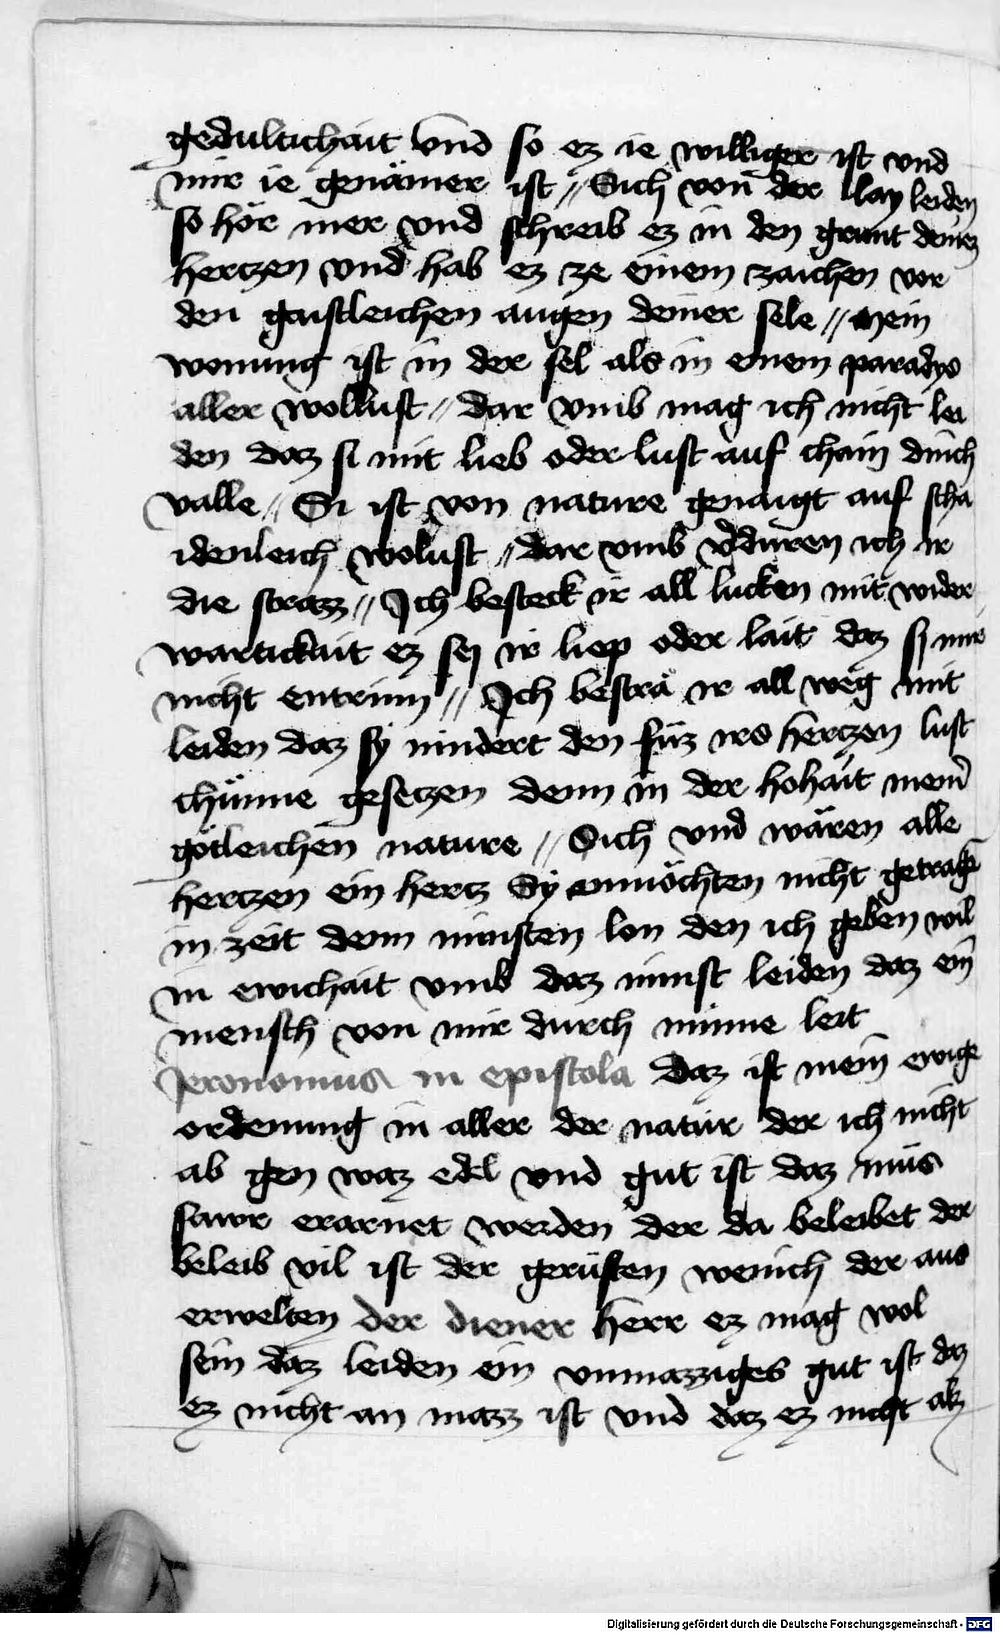 gedultichait vnd so ez ie williger ist vnd
mir ie genämer ist // Sich von der lay leiden
so hör mer vnd schreib ez in den grunt deinez
hertzen vnd hab ez ze einem zaichen vor
den gaistleichen augen deiner sele // Mein
wonung ist in der sel als in einem paradys
aller wollust // dar vmb mag ich nicht lei
den daz si mit lieb oder lust auf chain dinch
valle // Si ist von nature genaigt auf scha
idenleich wolust // dar vmb v̄duren ich ir
die strazz // Ich besteck ir all lucken mit wider
wartickait ez sej ir liep oder lait daz sj mir
nicht entrinn // Ich besträ ir all weg mit
leiden daz sy nindert den fuz irs hertzen lust
chünne gesetzen denn in der hohait mein̄
götleichen nature // Sich vnd wären alle
hertzen ein hertz Sy enmöchten nicht getragen
in zeit denn minsten lon den ich geben wil
in ewichait vmb daz minst leiden daz ein
mensch von mir durch minne leit
Jeronomus in epistola daz ist mein ewige
ordenung in aller der natur der ich nicht
ab gen waz edel vnd gut ist daz mus
sawr erarnet werden der da beleibet der
beleib vil ist der gerüften wenich der aus
erwelten der diener Herr ez mag wol
sein daz leiden ein vnmazziges gut ist daz
ez nicht an mazz ist vnd daz ez nicht alz
Digitalisierung gefördert durch die Deutsche Forschungsgemeinschaft - DFG